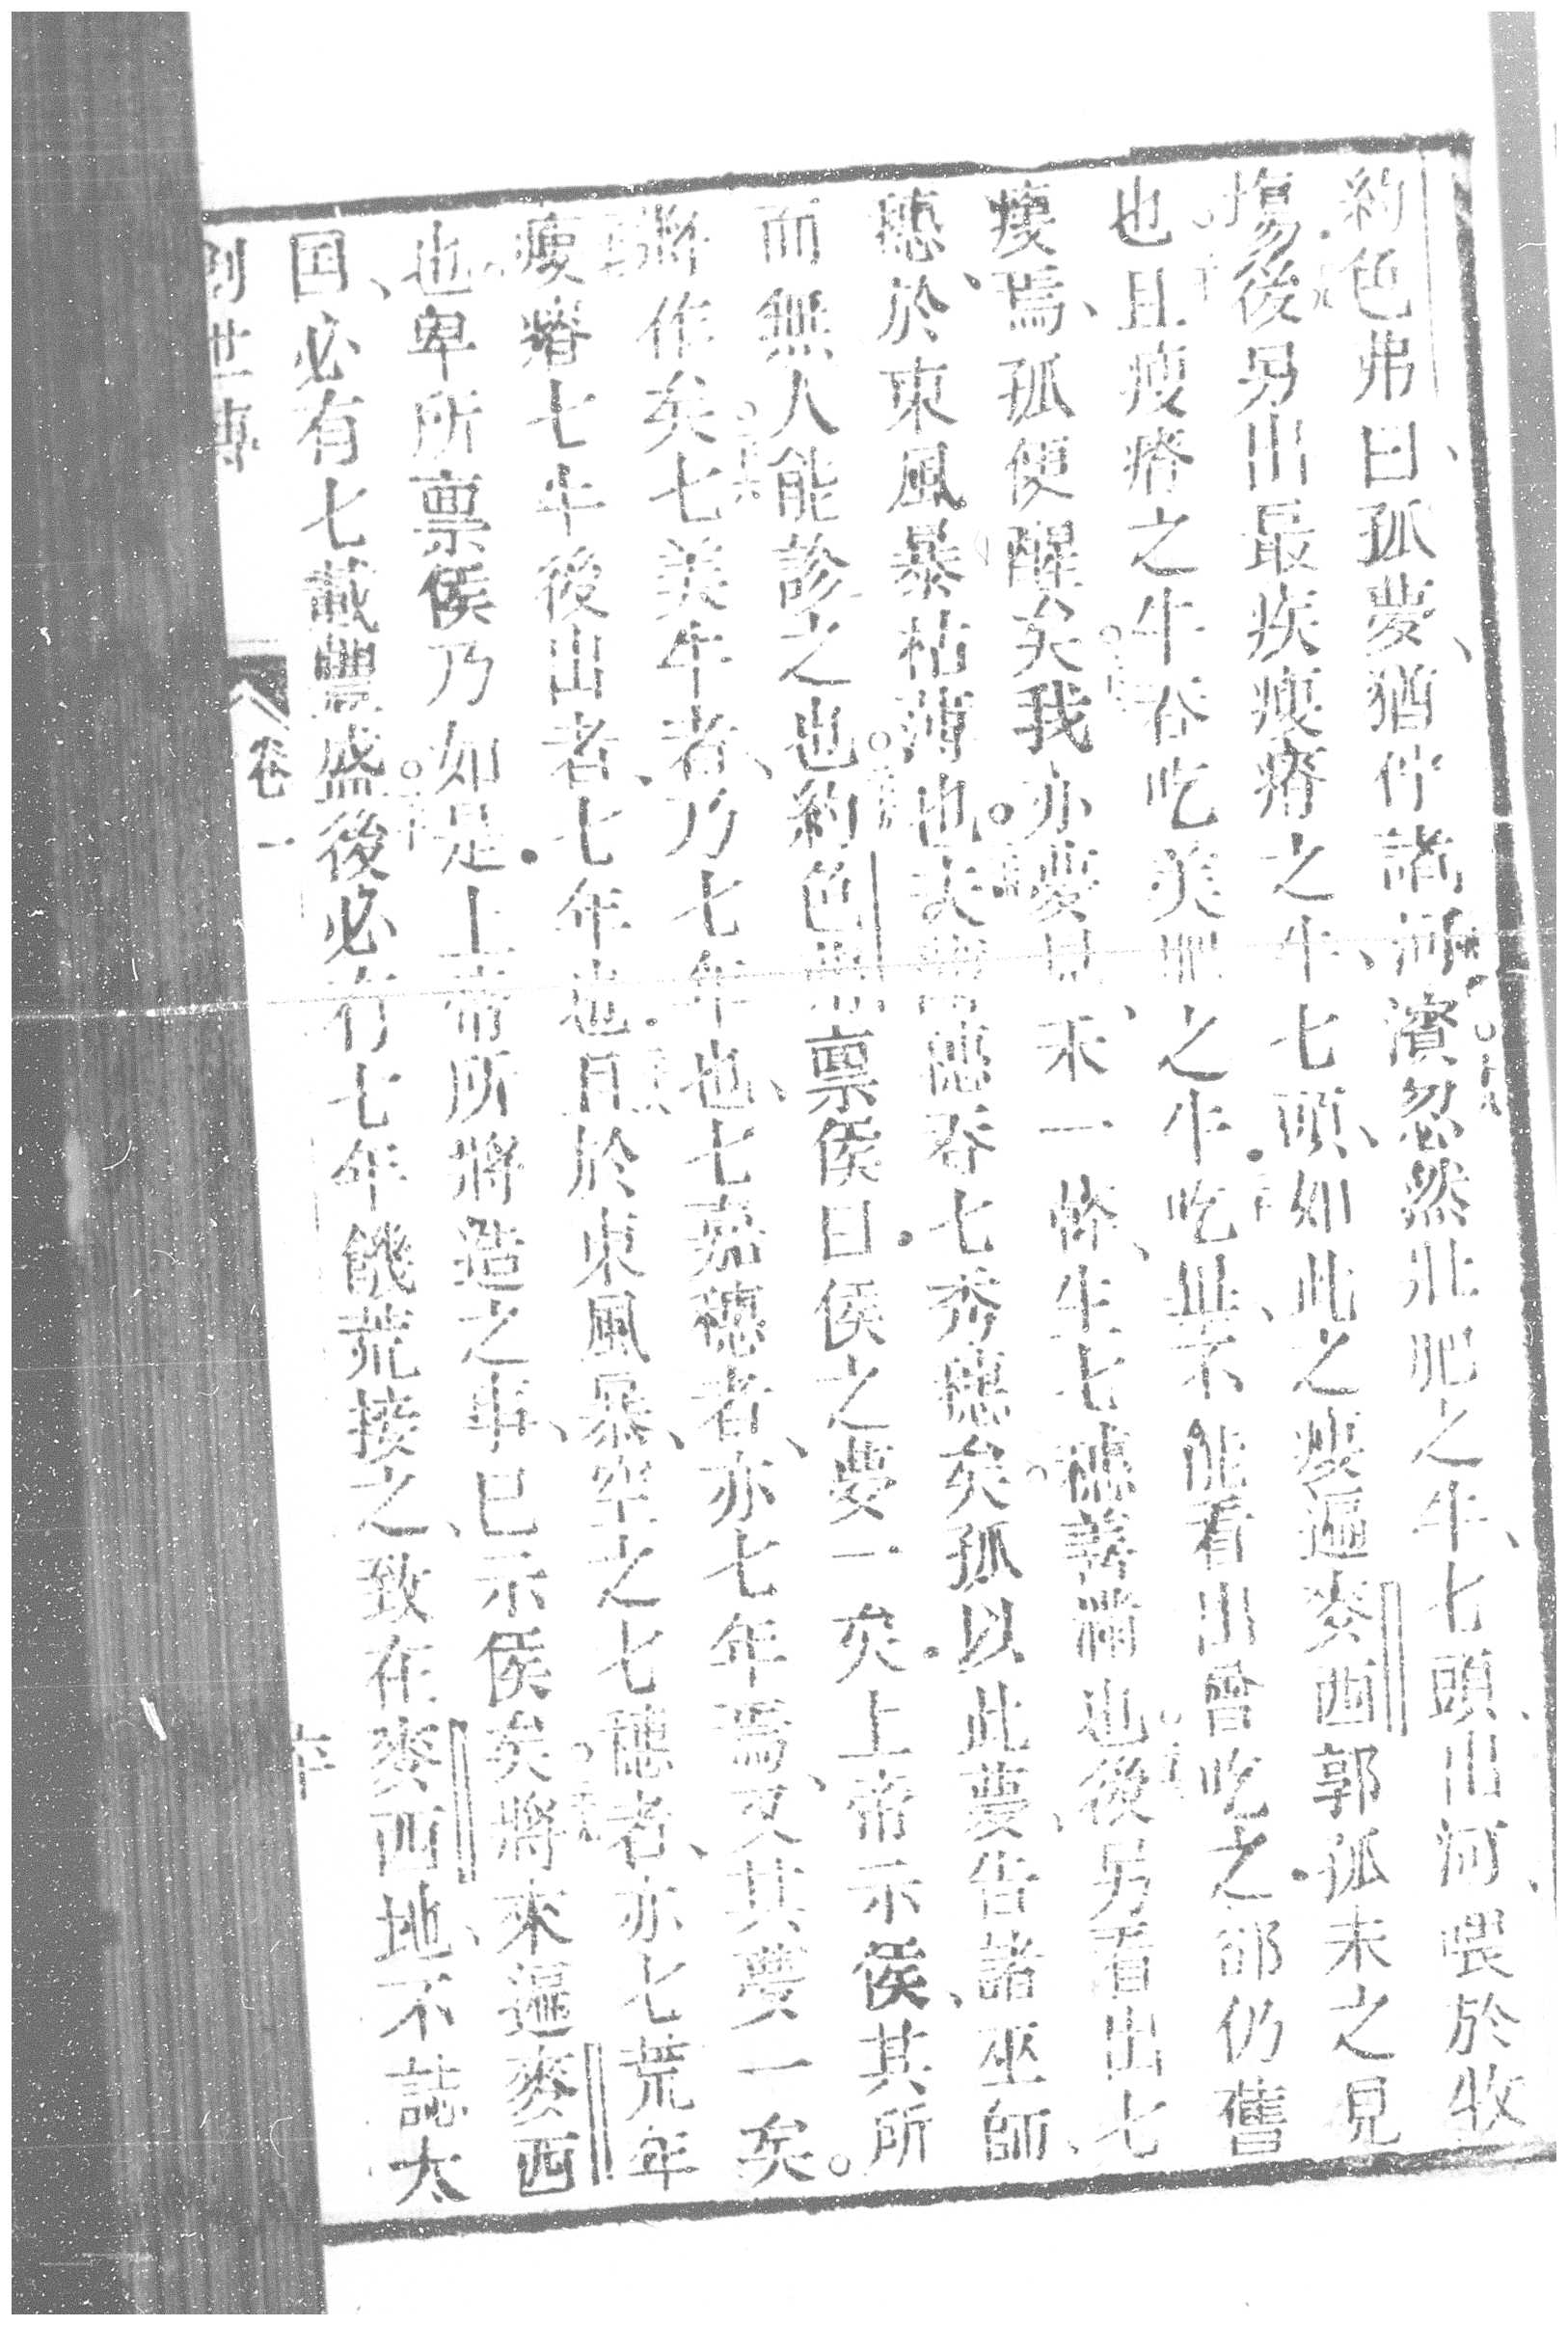 約色弗曰孤夢猶伫諸河濱忽然壯肥之牛七頭出河喂於牧
塲後另出最疾瘦瘠之牛七頭如此之瘦遍麥西郭孤未之見
也且瘦瘠之牛吞吃美肥之牛吃並不能看出曾吃之郤仍舊
瘦焉孤便醒矣我亦夢見禾一條生七穗善滿也後另看出七
穗於東風暴枯薄也夫 穗吞七秀穗矣孤以此夢告諸巫師
而無人能診之也約色弗禀侯曰侯之夢一矣上帝示侯其所
將作矣七美牛者乃七年也七嘉穗者亦七年焉又其夢一矣
瘦瘠七牛後出者七年也且於東風暴空之七穗者亦七荒年
也卑所禀侯乃如是上帝所將造之事已示侯矣將來遍麥西
国必有七載豐盛後必有七年饑荒接之致在麥西地不誌太
創世傳 卷一 六十